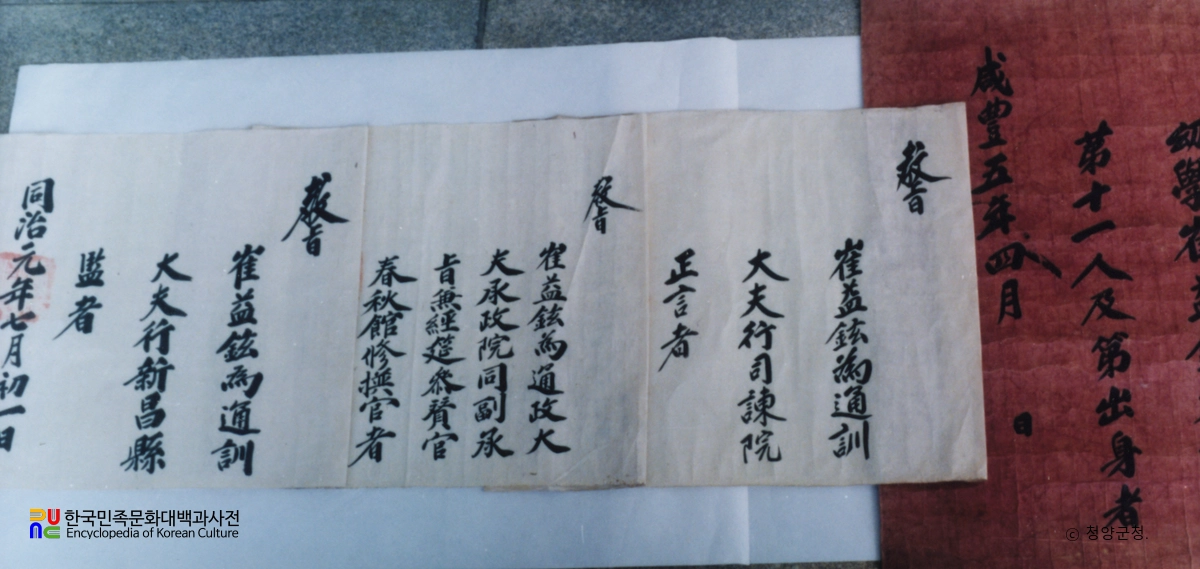 幼學崔益
第十一人及第出身者
咸豊五年四月 日
敎旨
崔益鉉爲通訓
大夫行司諫院
正言者
敎旨
崔益鉉爲通政大
夫承政院同副承
旨兼經筵參贊官
春秋館修撰官者
敎旨
崔益鉉爲通訓
大夫行新昌縣
監者
同治元年七月初一日
한국민족문화대백과사전
Encyclopedia of Korean Culture
© 청양군청.